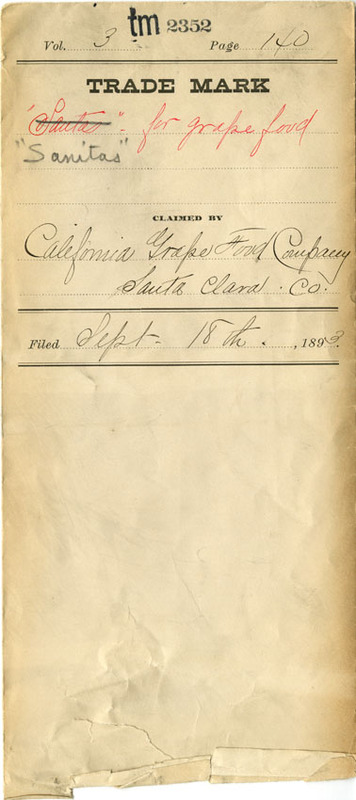 tm 2352
Vol. 3 Page 140
TRADE MARK
"Santas" - for grape food
"Sanitas"
CLAIMED BY
California Grape Food Company
Santa Clara Co.
Filed Sept - 18th. , 1893.